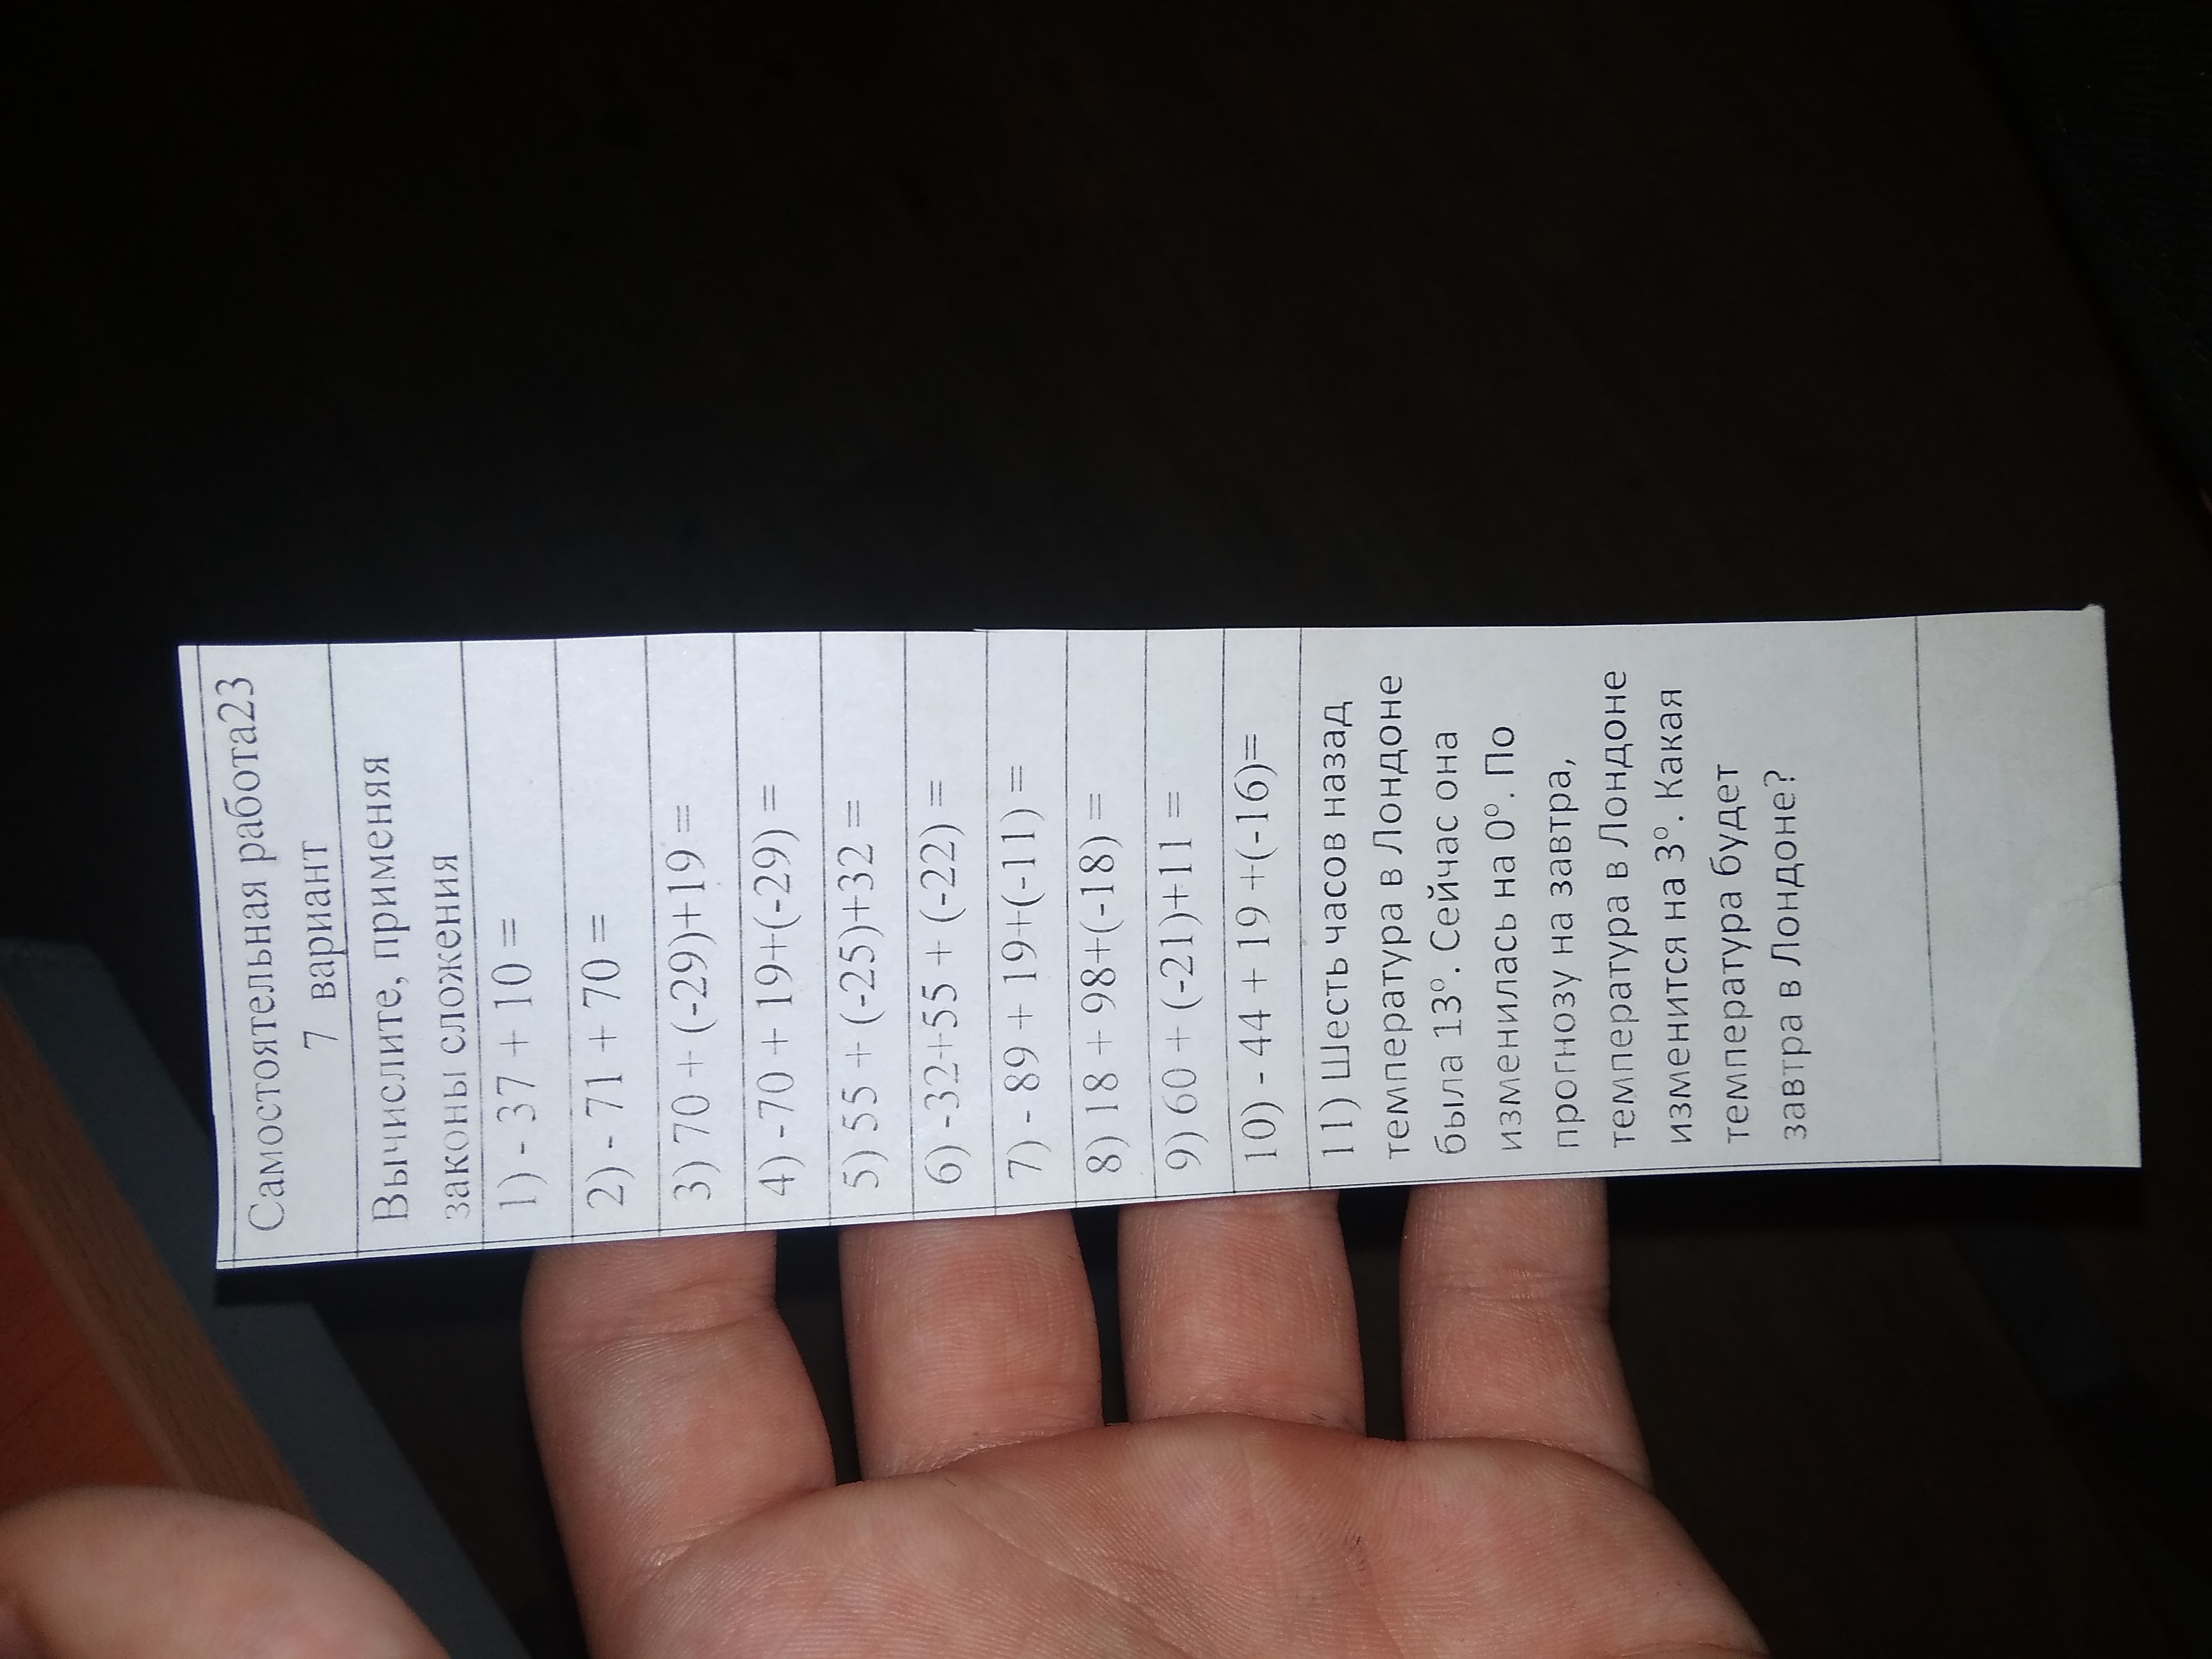 Самостоятельная работа23
7 вариант
Вычислите, применяя
законы сложения
1) - 37 + 10 =
2) - 71 + 70 =
3) 70 + (-29)+19 =
4) -70 + 19+(-29) =
5) 55 + (-25)+32 =
6) -32+55 + (-22) =
7) - 89 + 19+(-11) =
8) 18 + 98+(-18) =
9) 60 + (-21)+11 =
10) - 44 + 19 +(-16)=
11) Шесть часов назад
температура в Лондоне
была 13°. Сейчас она
изменилась на 0°. По
прогнозу на завтра,
температура в Лондоне
изменится на 3°. Какая
температура будет
завтра в Лондоне?